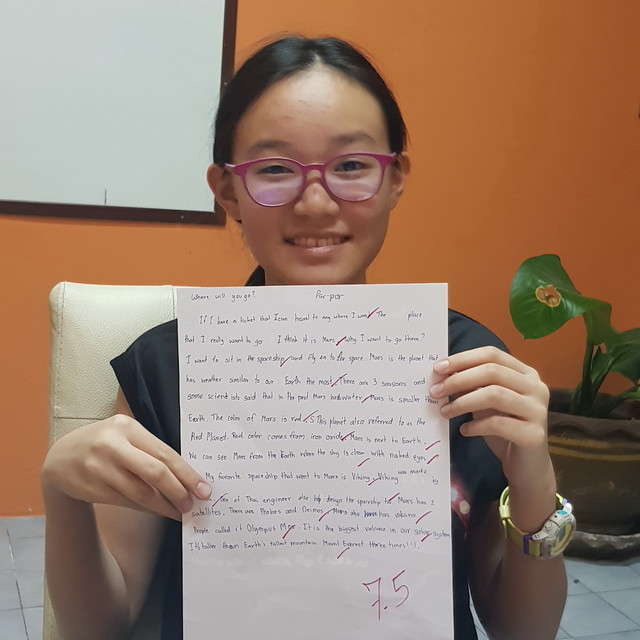 Where will you go? Por-por
If I have a ticket that I can travel to any where I want. The place
that I really want to go I think it is Mars. Why I want to go there?
I want to sit in the spaceship and fly in to the space Mars is the planet that
has weather similar to our Earth the most. There are 3 seasons and
some scientists said that in the past Mars had water. Mars is smaller than
Earth. The color of Mars is red. This planet also referred to as the
Red Planet. Red color comes from iron oxide. Mars is next to Earth.
We can see Mars from the Earth when the sky is clear with naked eyes.
My favorite spaceship that went to Mars is Viking. Viking was made by
one of Thai engineer also help design the spaceship to Mars has 2
satellites. There are Phobos and Deimos. Mars also has volcano
People call it Olympus Mon. It is the biggest volcano in our solar system
It's taller than Earth's tallest mountain Mount Everest three times!!!.
7.5